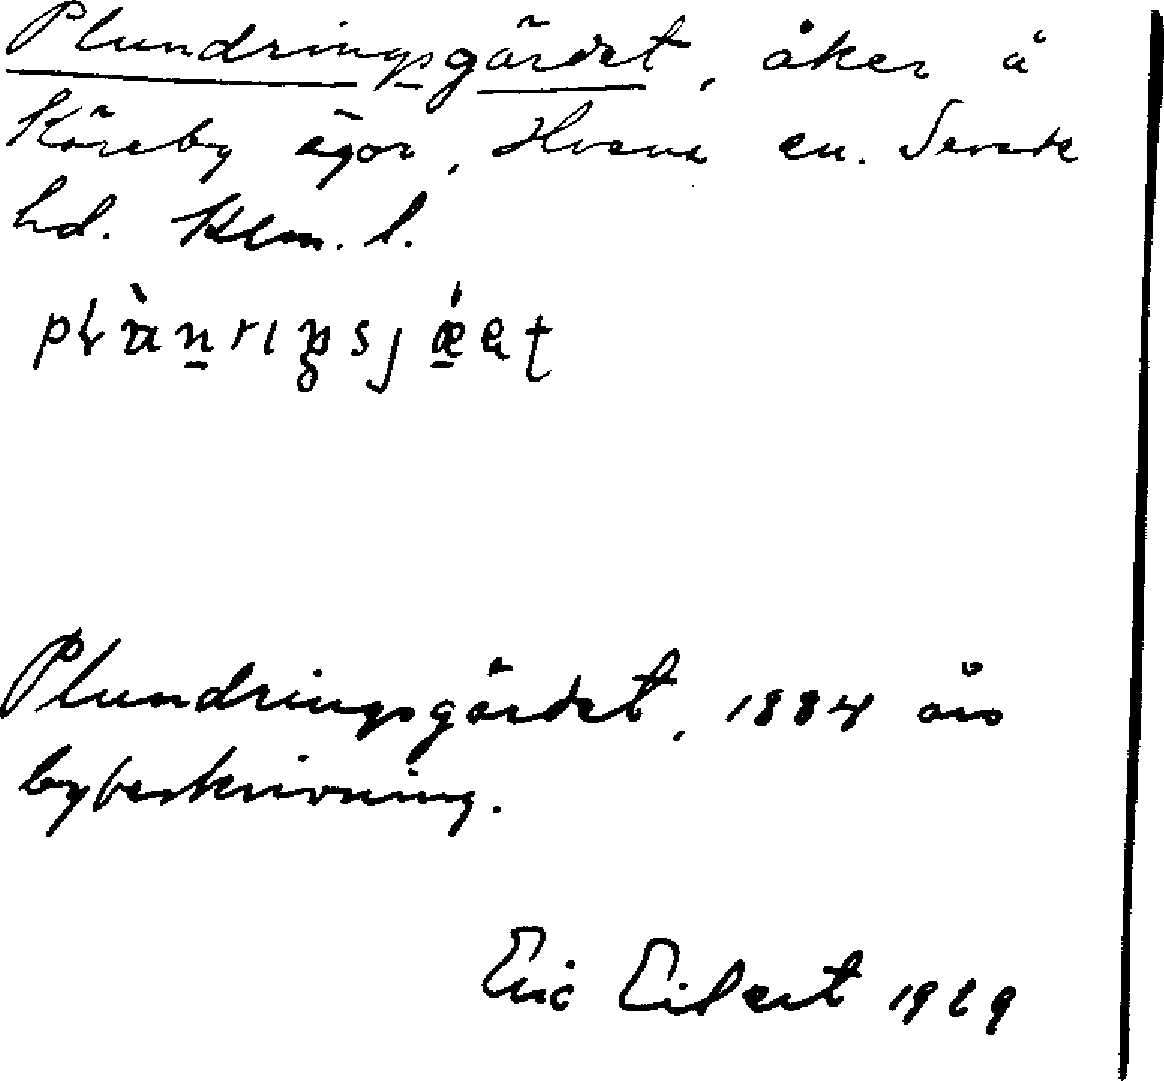 Plundringsgärdet, åker å
Köreby ägor, sn. Sevede
hd. Klm. l.
Plundringsgärdet, 1884 års
bybeskrivning.
Eric Eilert 1969